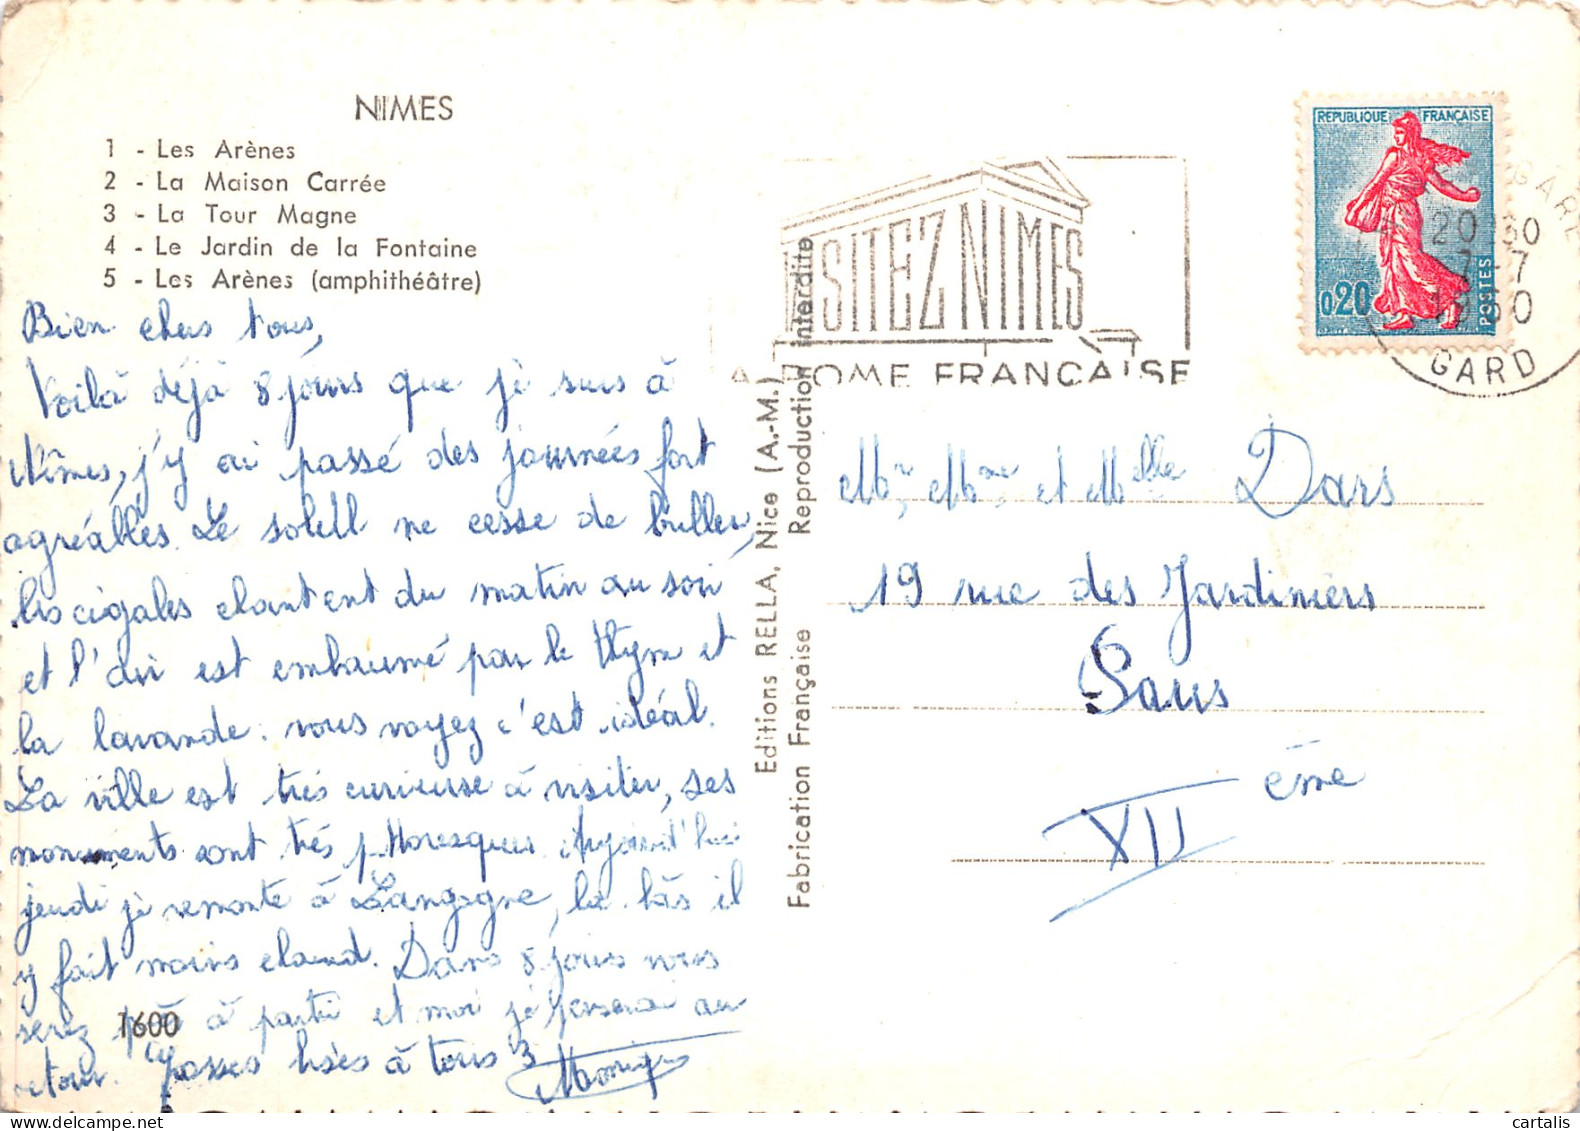 NIMES
1 - Les Arènes
2 - La Maison Carrée
3 - La Tour Magne
4 - Le Jardin de la Fontaine
5 - Les Arènes (amphithéâtre)
Bien chers tous,
Voilà déjà 8 jours que je suis à
Nîmes, j'y ai passé des journées fort
agréables. Le soleil ne cesse de briller,
les cigales chantent du matin au soir
et l'air est embaumé par le thym et
la lavande : vous voyez c'est idéal.
La ville est très curieuse à visiter, ses
monuments sont très pittoresques. Aujourd'hui
jeudi je remonte à Langogne, là bas il
y fait moins chaud. Dans 8 jours vous
serez à partir et moi je penserai au
retour. Grosses bises à tous 3
Monique
1600
Editions RELLA, Nice (A.-M.)
Fabrication Française Reproduction interdite
SITEZ NIMES
ROME FRANÇAISE
REPUBLIQUE FRANÇAISE
0,20
POSTES
GARE
20 30
7-7
1960
GARD
Mr, Mme et Melle Dars
19 rue des Jardiniers
Paris
XII ème
cartalis